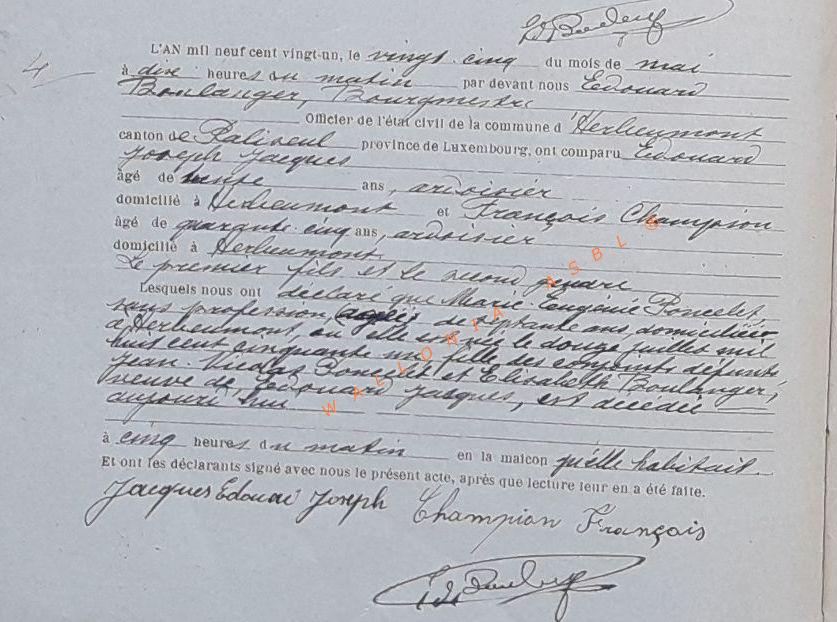 Ed Boulanger
4
L'AN mil neuf cent vingt-un, le vingt cinq du mois de mai
à dix heures du matin par devant nous Edouard
Boulanger, Bourgmestre
Officier de l'état civil de la commune d'Herbeumont
canton de Paliseul province de Luxembourg, ont comparu Edouard
Joseph Jacques
âgé de trente ans, ardoisier
domicilié à Herbeumont et François Champion
âgé de quarante cinq ans, ardoisier
domicilié à Herbeumont
Le premier fils et le second gendre
Lesquels nous ont déclaré que Marie Eugénie Poncelet
sans profession, âgée de septante ans, domiciliée
à Herbeumont, où elle est née le douze juillet mil
huit cent cinquante un, fille des conjoints défunts
Jean Nicolas Poncelet et Elisabeth Boulanger,
veuve de Edouard Jacques, est décédée
aujourd'hui
à cinq heures du matin en la maison qu'elle habitait.
Et ont les déclarants signé avec nous le présent acte, après que lecture leur en a été faite.
Jacques Edouard Joseph Champion François
Ed Boulanger
WALLONIA ASBL ©